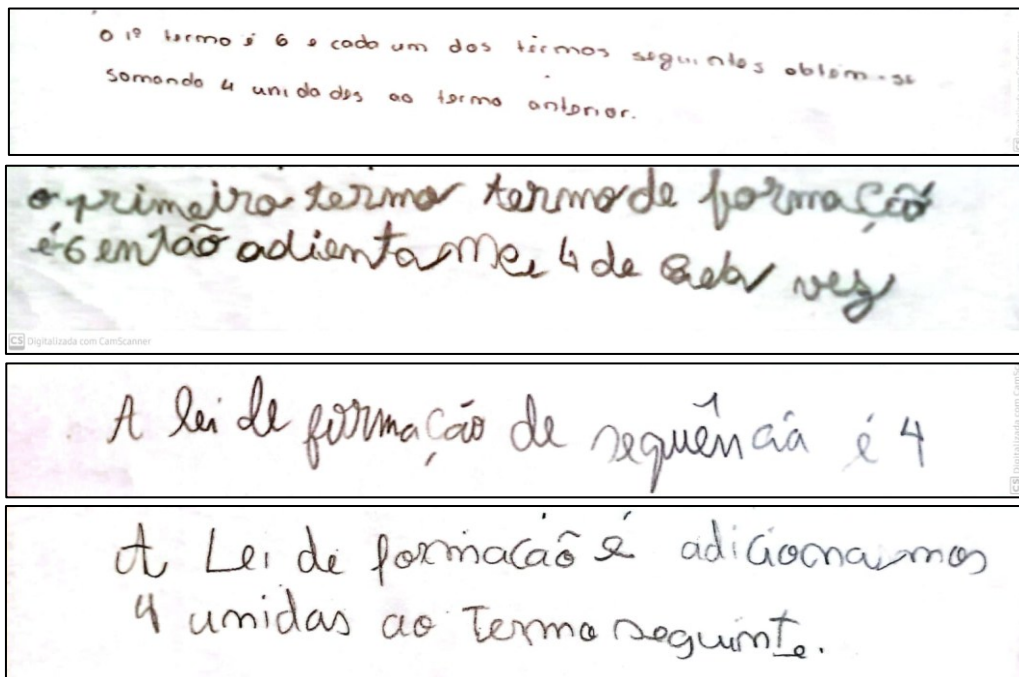 O 1º termo é 6 e cada um dos termos seguintes obtem-se
somando 4 unidades ao termo anterior.
o primeiro termo termo de formação
é 6 então adienta mei 4 de cada vez
CS Digitalizada com CamScanner
A lei de formação de sequência é 4
A Lei de formacaõ é adicionarmos
4 unidas ao Termo seguinte.